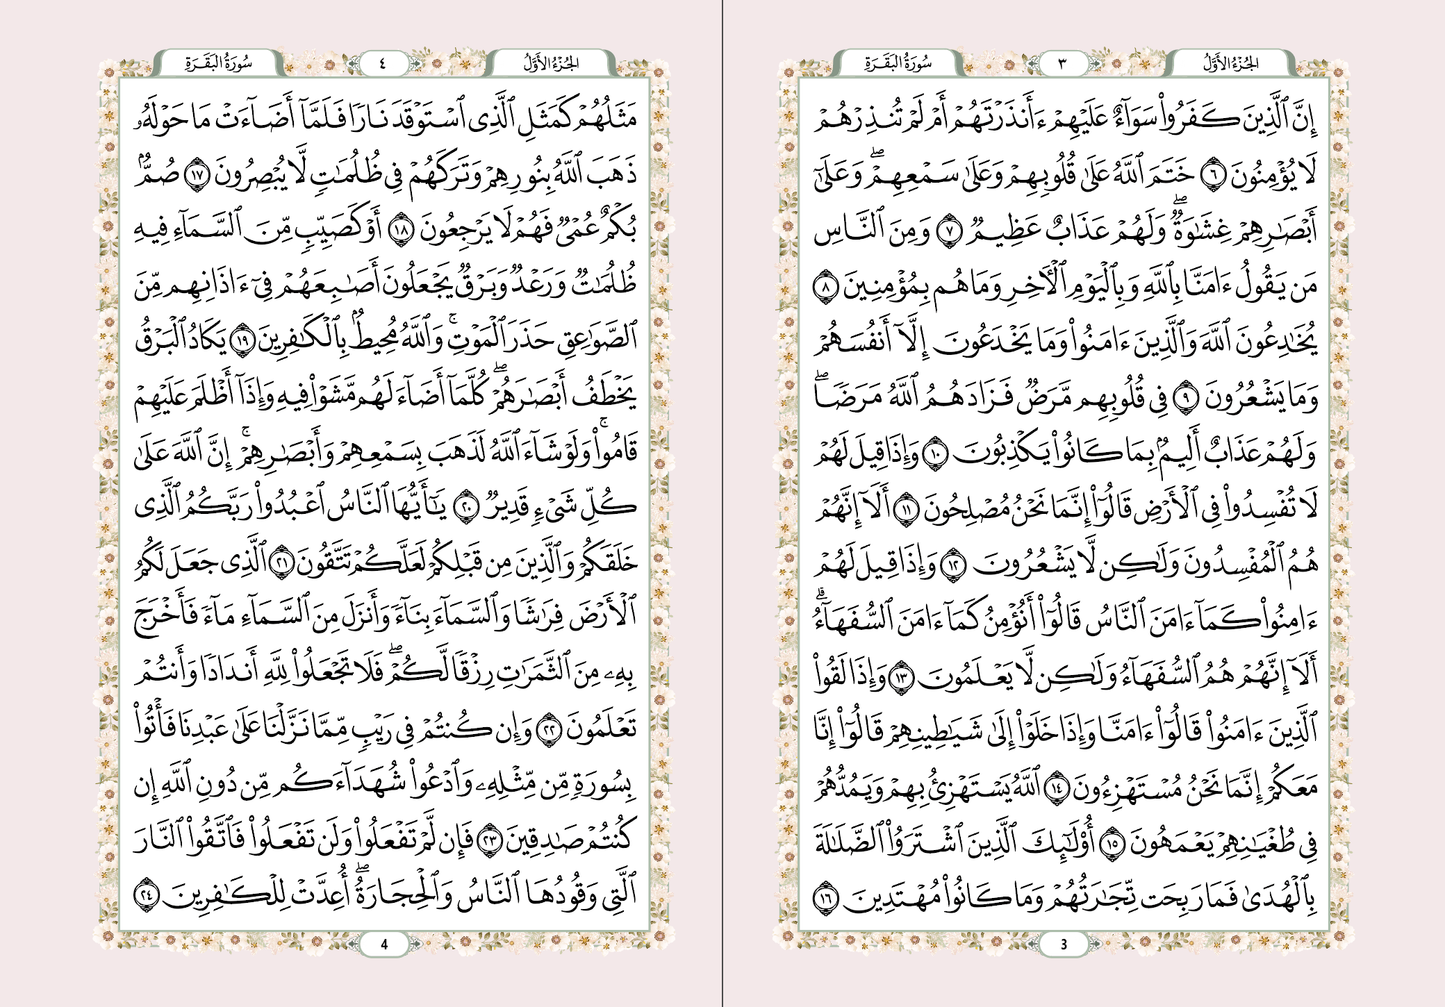 الجُزْءُ الأَوَّلُ
٣
سُورَةُ البَقَرَةِ
إِنَّ ٱلَّذِينَ كَفَرُوا۟ سَوَآءٌ عَلَيْهِمْ ءَأَنذَرْتَهُمْ أَمْ لَمْ تُنذِرْهُمْ
لَا يُؤْمِنُونَ ٦ خَتَمَ ٱللَّهُ عَلَىٰ قُلُوبِهِمْ وَعَلَىٰ سَمْعِهِمْ ۖ وَعَلَىٰٓ
أَبْصَـٰرِهِمْ غِشَـٰوَةٌ ۖ وَلَهُمْ عَذَابٌ عَظِيمٌ ٧ وَمِنَ ٱلنَّاسِ
مَن يَقُولُ ءَامَنَّا بِٱللَّهِ وَبِٱلْيَوْمِ ٱلْـَٔاخِرِ وَمَا هُم بِمُؤْمِنِينَ ٨
يُخَـٰدِعُونَ ٱللَّهَ وَٱلَّذِينَ ءَامَنُوا۟ وَمَا يَخْدَعُونَ إِلَّآ أَنفُسَهُمْ
وَمَا يَشْعُرُونَ ٩ فِى قُلُوبِهِم مَّرَضٌ فَزَادَهُمُ ٱللَّهُ مَرَضًا ۖ
وَلَهُمْ عَذَابٌ أَلِيمٌۢ بِمَا كَانُوا۟ يَكْذِبُونَ ١٠ وَإِذَا قِيلَ لَهُمْ
لَا تُفْسِدُوا۟ فِى ٱلْأَرْضِ قَالُوٓا۟ إِنَّمَا نَحْنُ مُصْلِحُونَ ١١ أَلَآ إِنَّهُمْ
هُمُ ٱلْمُفْسِدُونَ وَلَـٰكِن لَّا يَشْعُرُونَ ١٢ وَإِذَا قِيلَ لَهُمْ
ءَامِنُوا۟ كَمَآ ءَامَنَ ٱلنَّاسُ قَالُوٓا۟ أَنُؤْمِنُ كَمَآ ءَامَنَ ٱلسُّفَهَآءُ ۗ
أَلَآ إِنَّهُمْ هُمُ ٱلسُّفَهَآءُ وَلَـٰكِن لَّا يَعْلَمُونَ ١٣ وَإِذَا لَقُوا۟
ٱلَّذِينَ ءَامَنُوا۟ قَالُوٓا۟ ءَامَنَّا وَإِذَا خَلَوْا۟ إِلَىٰ شَيَـٰطِينِهِمْ قَالُوٓا۟ إِنَّا
مَعَكُمْ إِنَّمَا نَحْنُ مُسْتَهْزِءُونَ ١٤ ٱللَّهُ يَسْتَهْزِئُ بِهِمْ وَيَمُدُّهُمْ
فِى طُغْيَـٰنِهِمْ يَعْمَهُونَ ١٥ أُو۟لَـٰٓئِكَ ٱلَّذِينَ ٱشْتَرَوُا۟ ٱلضَّلَـٰلَةَ
بِٱلْهُدَىٰ فَمَا رَبِحَت تِّجَـٰرَتُهُمْ وَمَا كَانُوا۟ مُهْتَدِينَ ١٦
3
الجُزْءُ الأَوَّلُ
٤
سُورَةُ البَقَرَةِ
مَثَلُهُمْ كَمَثَلِ ٱلَّذِى ٱسْتَوْقَدَ نَارًا فَلَمَّآ أَضَآءَتْ مَا حَوْلَهُۥ
ذَهَبَ ٱللَّهُ بِنُورِهِمْ وَتَرَكَهُمْ فِى ظُلُمَـٰتٍ لَّا يُبْصِرُونَ ١٧ صُمٌّۢ
بُكْمٌ عُمْىٌ فَهُمْ لَا يَرْجِعُونَ ١٨ أَوْ كَصَيِّبٍ مِّنَ ٱلسَّمَآءِ فِيهِ
ظُلُمَـٰتٌ وَرَعْدٌ وَبَرْقٌ يَجْعَلُونَ أَصَـٰبِعَهُمْ فِىٓ ءَاذَانِهِم مِّنَ
ٱلصَّوَٰعِقِ حَذَرَ ٱلْمَوْتِ ۚ وَٱللَّهُ مُحِيطٌۢ بِٱلْكَـٰفِرِينَ ١٩ يَكَادُ ٱلْبَرْقُ
يَخْطَفُ أَبْصَـٰرَهُمْ ۖ كُلَّمَآ أَضَآءَ لَهُم مَّشَوْا۟ فِيهِ وَإِذَآ أَظْلَمَ عَلَيْهِمْ
قَامُوا۟ ۚ وَلَوْ شَآءَ ٱللَّهُ لَذَهَبَ بِسَمْعِهِمْ وَأَبْصَـٰرِهِمْ ۚ إِنَّ ٱللَّهَ عَلَىٰ
كُلِّ شَىْءٍ قَدِيرٌ ٢٠ يَـٰٓأَيُّهَا ٱلنَّاسُ ٱعْبُدُوا۟ رَبَّكُمُ ٱلَّذِى
خَلَقَكُمْ وَٱلَّذِينَ مِن قَبْلِكُمْ لَعَلَّكُمْ تَتَّقُونَ ٢١ ٱلَّذِى جَعَلَ لَكُمُ
ٱلْأَرْضَ فِرَٰشًا وَٱلسَّمَآءَ بِنَآءً وَأَنزَلَ مِنَ ٱلسَّمَآءِ مَآءً فَأَخْرَجَ
بِهِۦ مِنَ ٱلثَّمَرَٰتِ رِزْقًا لَّكُمْ ۖ فَلَا تَجْعَلُوا۟ لِلَّهِ أَندَادًا وَأَنتُمْ
تَعْلَمُونَ ٢٢ وَإِن كُنتُمْ فِى رَيْبٍ مِّمَّا نَزَّلْنَا عَلَىٰ عَبْدِنَا فَأْتُوا۟
بِسُورَةٍ مِّن مِّثْلِهِۦ وَٱدْعُوا۟ شُهَدَآءَكُم مِّن دُونِ ٱللَّهِ إِن
كُنتُمْ صَـٰدِقِينَ ٢٣ فَإِن لَّمْ تَفْعَلُوا۟ وَلَن تَفْعَلُوا۟ فَٱتَّقُوا۟ ٱلنَّارَ
ٱلَّتِى وَقُودُهَا ٱلنَّاسُ وَٱلْحِجَارَةُ ۖ أُعِدَّتْ لِلْكَـٰفِرِينَ ٢٤
4